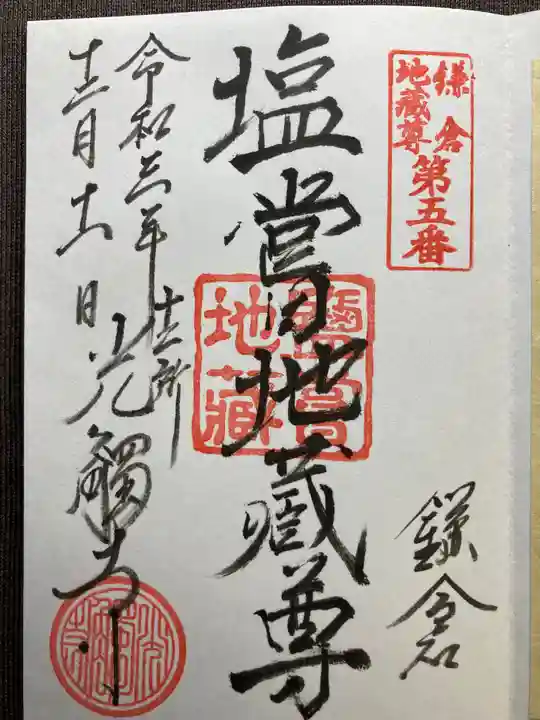 鎌倉
地蔵尊
第五番
鎌倉
塩嘗地蔵尊
鹽嘗
地藏
令和三年
十二月
十二所
光觸寺